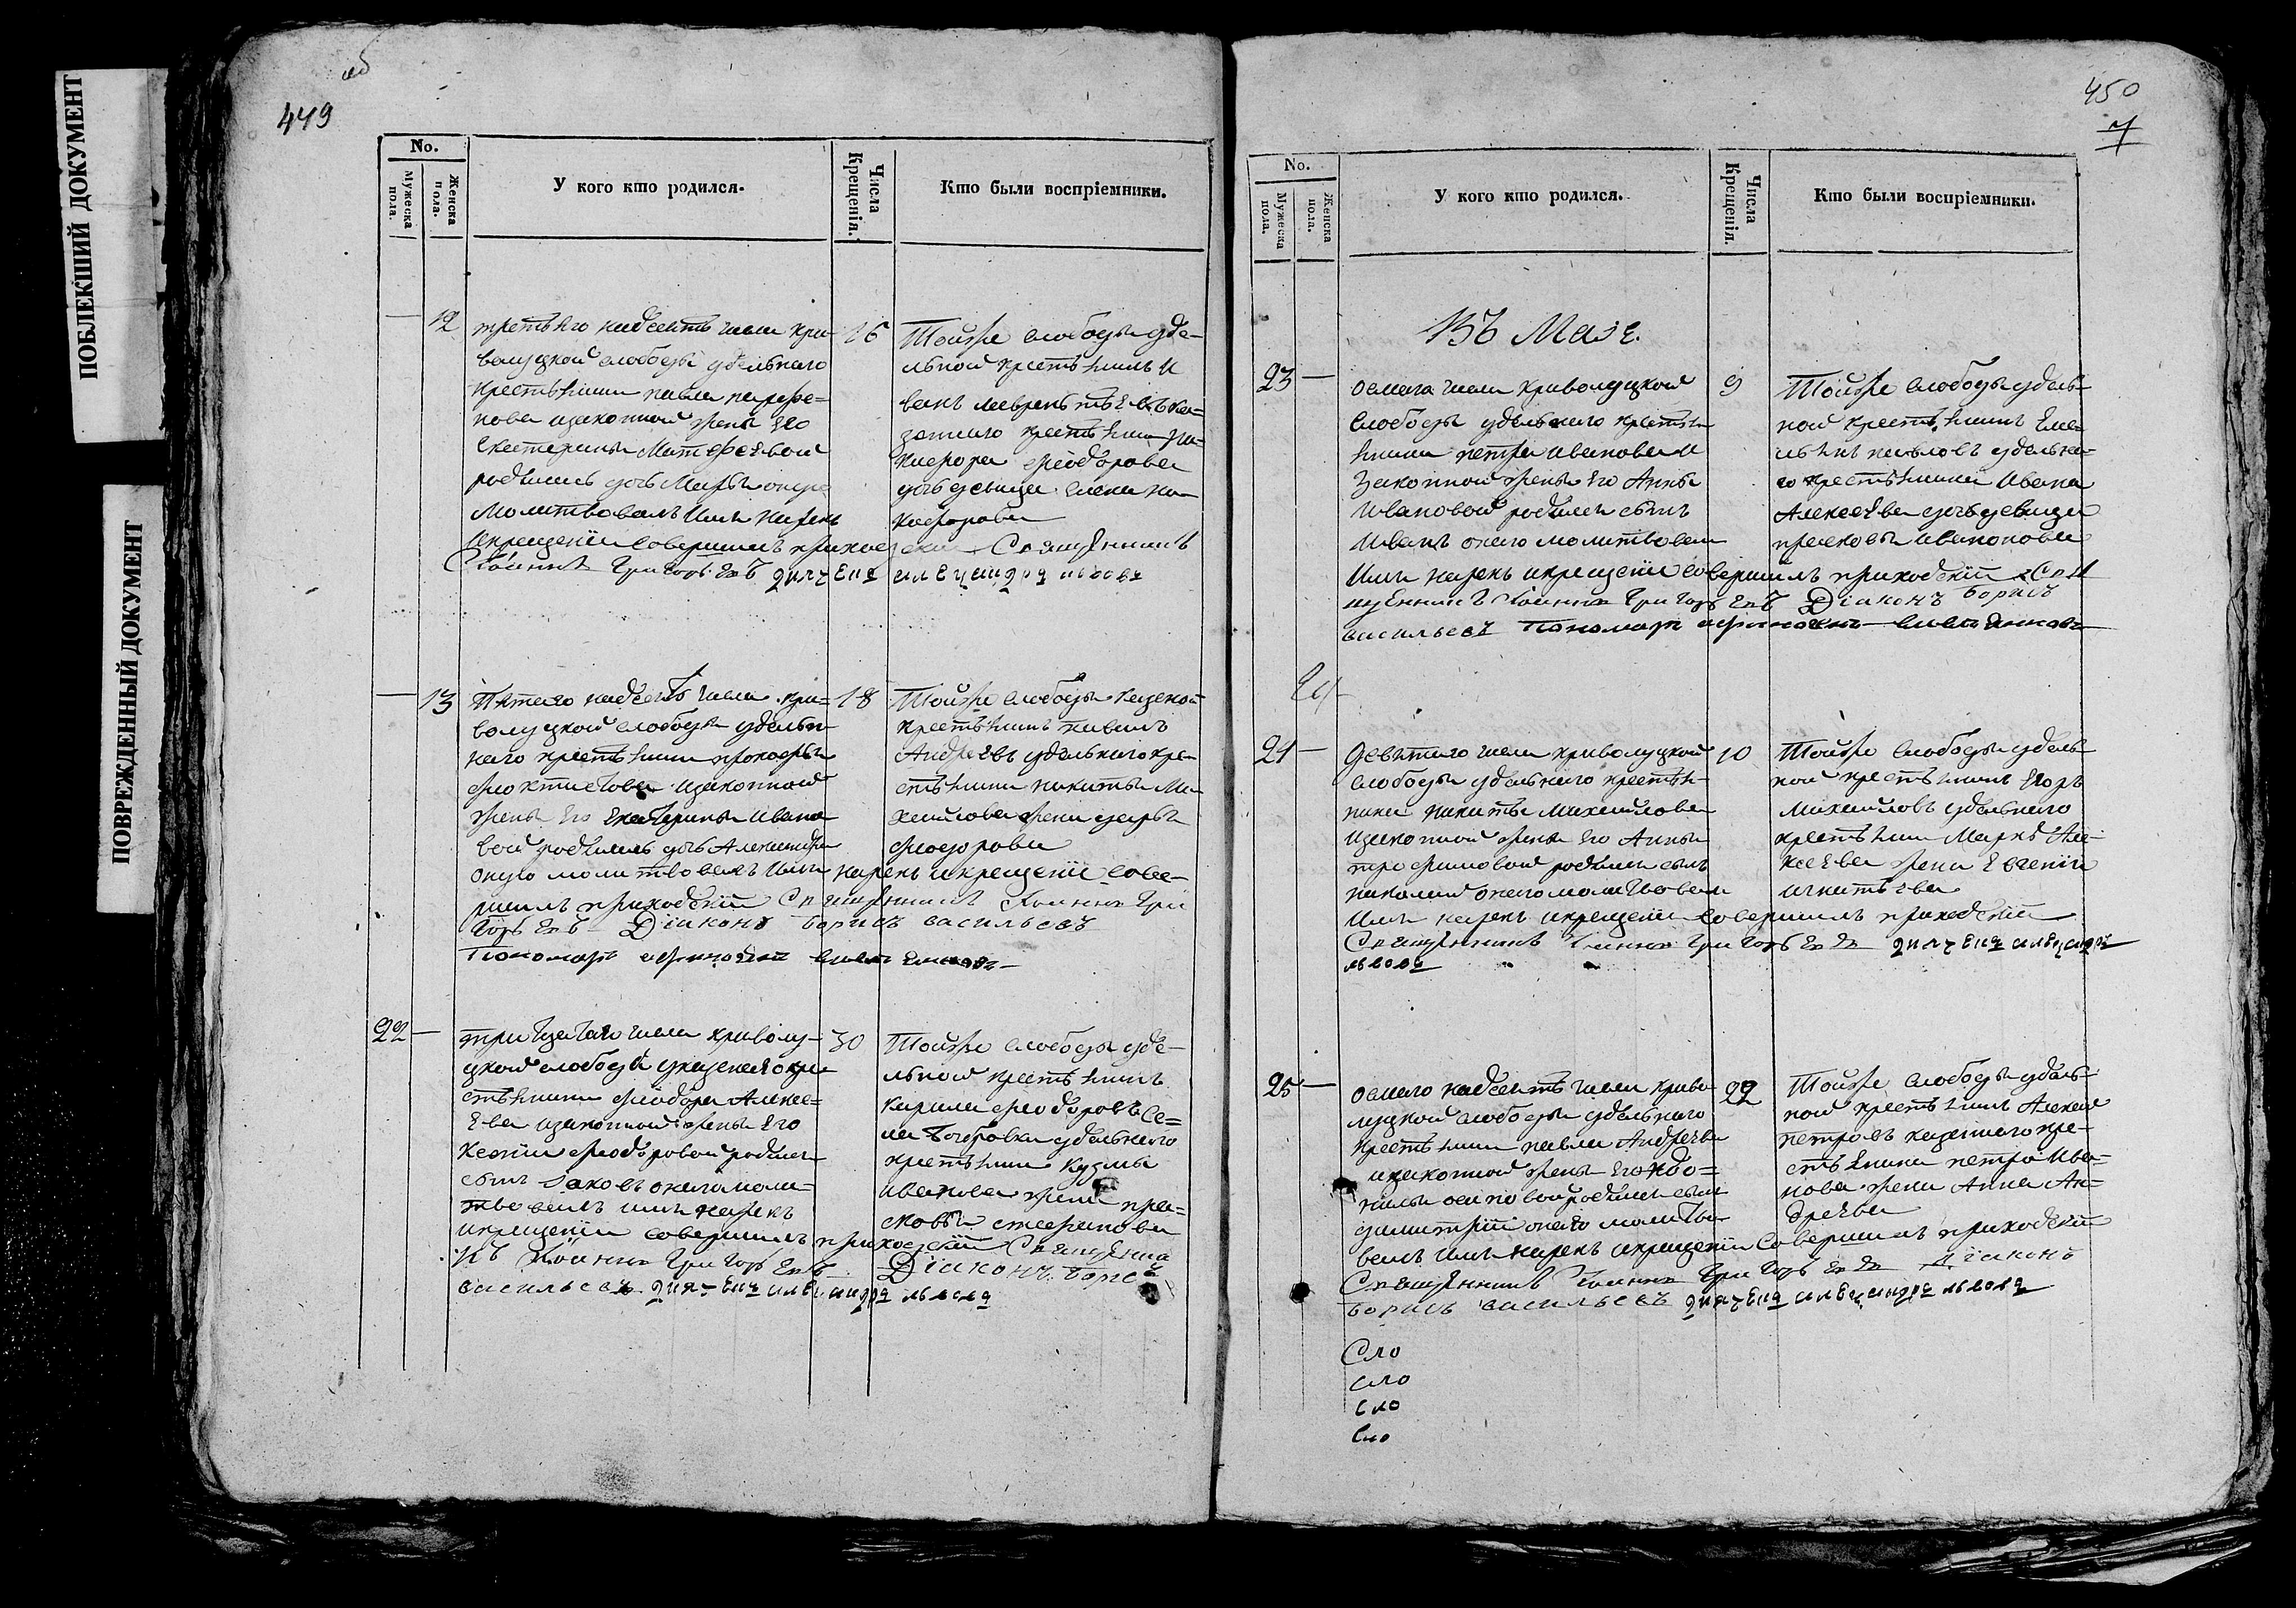 ПОБЛЕКШИЙ ДОКУМЕНТ
ПОВРЕЖДЕННЫЙ ДОКУМЕНТ
об
449
No.
Мужеска пола.
Женска пола.
У кого кто родился.
Числа Крещенія.
Кто были воспріемники.
12
третьяго надесять числа кри-
волуцкой слободы удельнаго
крестьянина павла
нова изаконной жены его
Екатерины Матфеевой
родилась дочь Марья оную
молитвовалъ имя нарекъ
икрещеніе совершилъ приходской Священникъ
Іоаннъ Григорьевъ
16
Тойже слободы уде-
льной крестьянинъ и
ванъ лаврентьевъ ка-
зеннаго крестьянина ни-
кифора феодорова
дочь девица елена ни-
кифорова
13
Пятаго надесять числа кри-
волуцкой слободы удель-
наго крестьянина прокофья
феоктистова изаконной
жены его екатерины ивано-
вой родилась дочь Александра
оную молитвовалъ имя нарекъ икрещеніе сове-
ршилъ приходскій Священникъ Іоаннъ Гри
горьевъ Діаконъ борисъ васильевъ
Пономарь
18
Тойже слободы казеной
крестьянинъ павелъ
Андреевъ удельнаго кре-
стьянина никиты ми-
хайлова жена дарья
феодорова
22
тридцатаго числа криволу-
цкой слободы казенаго кре-
стьянина феодора Алексе-
ева изаконной жены его
ксеніи феодоровой родился
сынъ Іаковъ онаго моли-
твовалъ имя нарекъ
икрещеніе совершилъ приходскій Священни
къ Іоаннъ Григорьевъ Діаконъ борисъ
васильевъ
30
Тойже слободы уде-
льной крестьянинъ
кирила феодоровъ се-
ла бобровки удельнаго
крестьянина кузмы
иванова жена пра-
сковья стефанова
450
7
No.
Мужеска пола.
Женска пола.
У кого кто родился.
Числа Крещенія.
Кто были воспріемники.
Въ Маіе.
23
осмаго числа криволуцкой
слободы удельнаго крестья-
нина петра иванова и
законной жены его Анны
ивановой родился сынъ
иванъ онаго молитвовалъ
имя нарекъ икрещеніе совершилъ приходскій Свя
щенникъ Іоаннъ Григорьевъ Діаконъ борисъ
васильевъ Пономарь
9
Тойже слободы удель-
ной крестьянинъ Еме-
льянъ павловъ удельна-
го крестьянина ивана
Алексеева дочь девица
прасковья иванонова
24
девятаго числа криволуцкой
слободы удельнаго крестья-
нина никиты михайлова
изаконной жены его Анны
трофимовой родился сынъ
николай онаго молитвовалъ
имя нарекъ икрещеніе совершилъ приходскій
Священникъ Іоаннъ Григорьевъ
10
Тойже слободы удель-
ной крестьянинъ егоръ
михайловъ удельнаго
крестьянина Марка Але-
ксеева жена евгенія
игнатьева
25
осмаго надесять числа криво-
луцкой слободы удельнаго
крестьянина павла Андреева
изаконной жены его
осиповой родился сынъ
димитрій онаго молитво-
валъ имя нарекъ икрещеніе совершилъ приходскій
Священникъ Іоаннъ Григорьевъ Діаконъ
борисъ васильевъ
22
Тойже слободы удель-
ной крестьянинъ Алексей
петровъ казеннаго кре-
стьянина петра ива-
нова жена Анна Ан-
дреева
Сло
сло
сло
сло